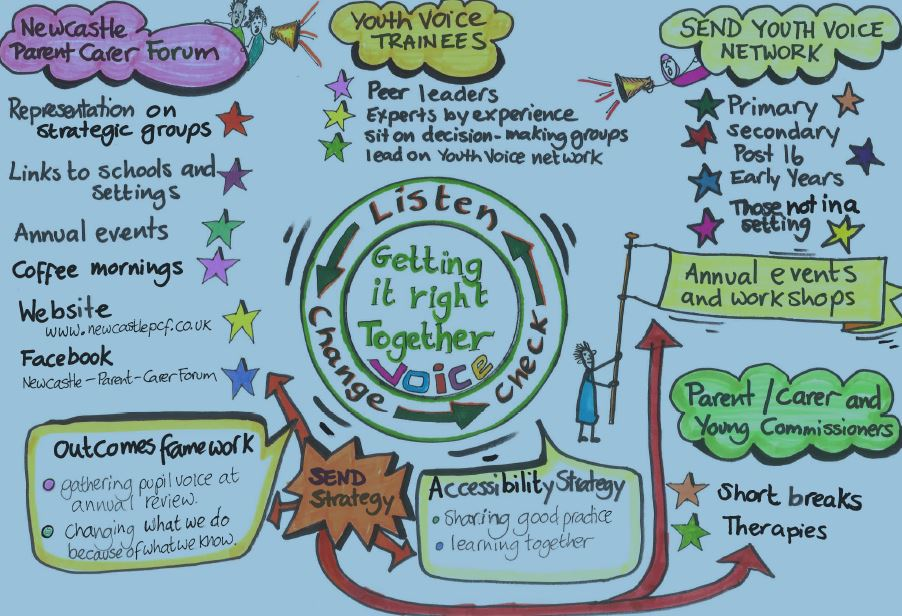 Newcastle
Parent Carer Forum
Representation on
strategic groups
Links to schools and
settings
Annual events
Coffee mornings
Website
www.newcastlepcf.co.uk
Facebook
Newcastle-Parent-Carer Forum
YOUTH VOICE
TRAINEES
Peer leaders
Experts by experience
sit on decision-making groups
lead on Youth Voice network
SEND YOUTH VOICE
NETWORK
Primary
secondary
Post 16
Early Years
Those not in a
setting
Annual events
and workshops
Listen
Change
Check
Getting
it right
Together
VOICE
Parent/Carer and
Young Commissioners
Short breaks
Therapies
Outcomes framework
gathering pupil voice at
annual review.
Changing what we do
because of what we know.
SEND
Strategy
Accessibility Strategy
Sharing good practice
learning together